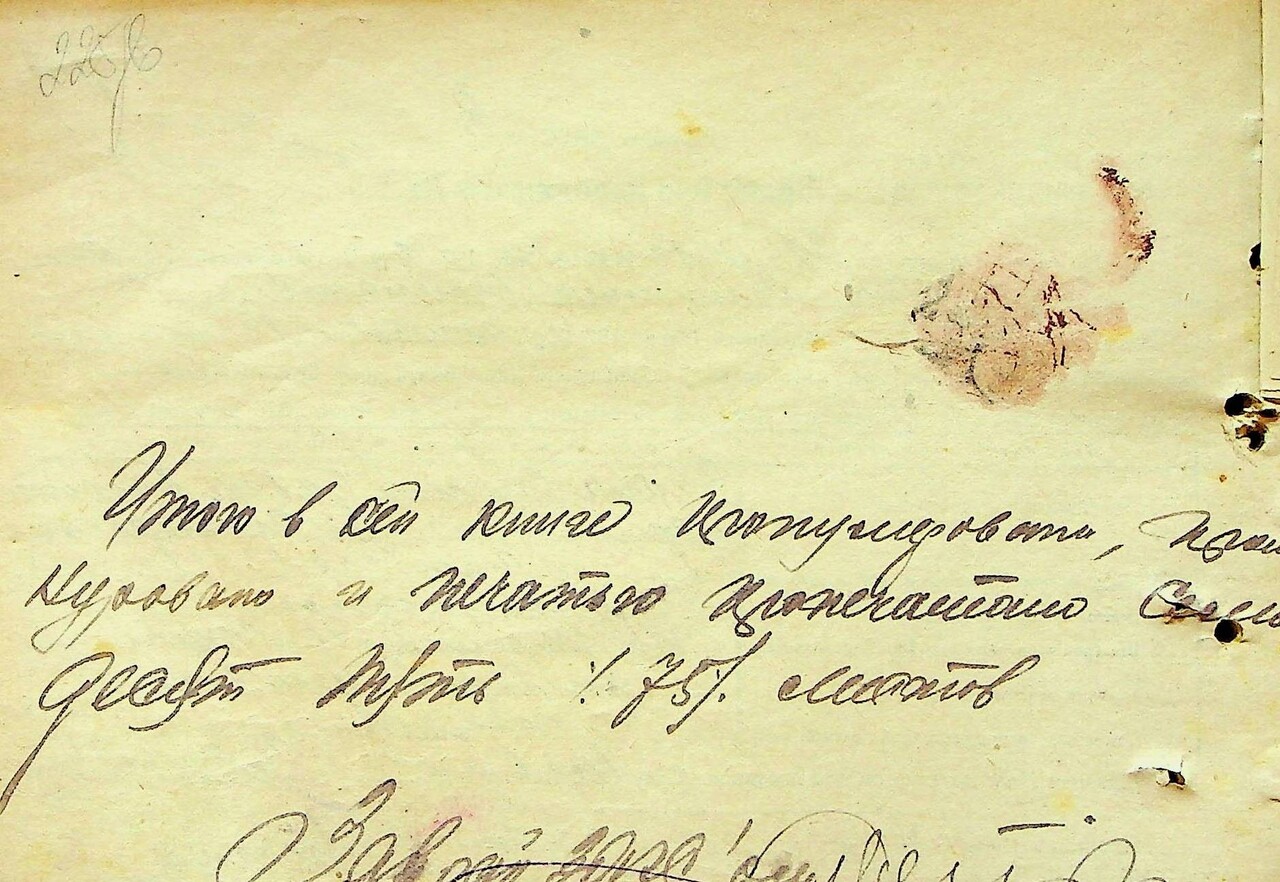 226
Итого в сей книге пронумеровано, прош
нуровано и печатью пропечатано семь
десят пять /.75/. листов